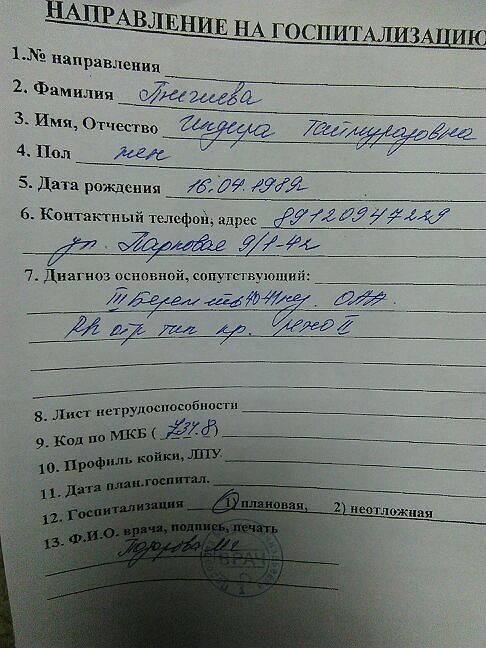 НАПРАВЛЕНИЕ НА ГОСПИТАЛИЗАЦИЮ
1.№ направления
2. Фамилия Тигиева
3. Имя, Отчество Индира Таймуразовна
4. Пол жен
5. Дата рождения 16.04.1989г
6. Контактный телефон, адрес 89120947229
ул. Парковая 9/1-42
7. Диагноз основной, сопутствующий:
III Берем ть 40-41нед. ОАА.
Rh отр тип кр.
8. Лист нетрудоспособности
9. Код по МКБ ( Z34.8 )
10. Профиль койки, ЛПУ.
11. Дата план.госпитал.
12. Госпитализация 1) плановая, 2) неотложная
13. Ф.И.О. врача, подпись, печать
ВРАЧ